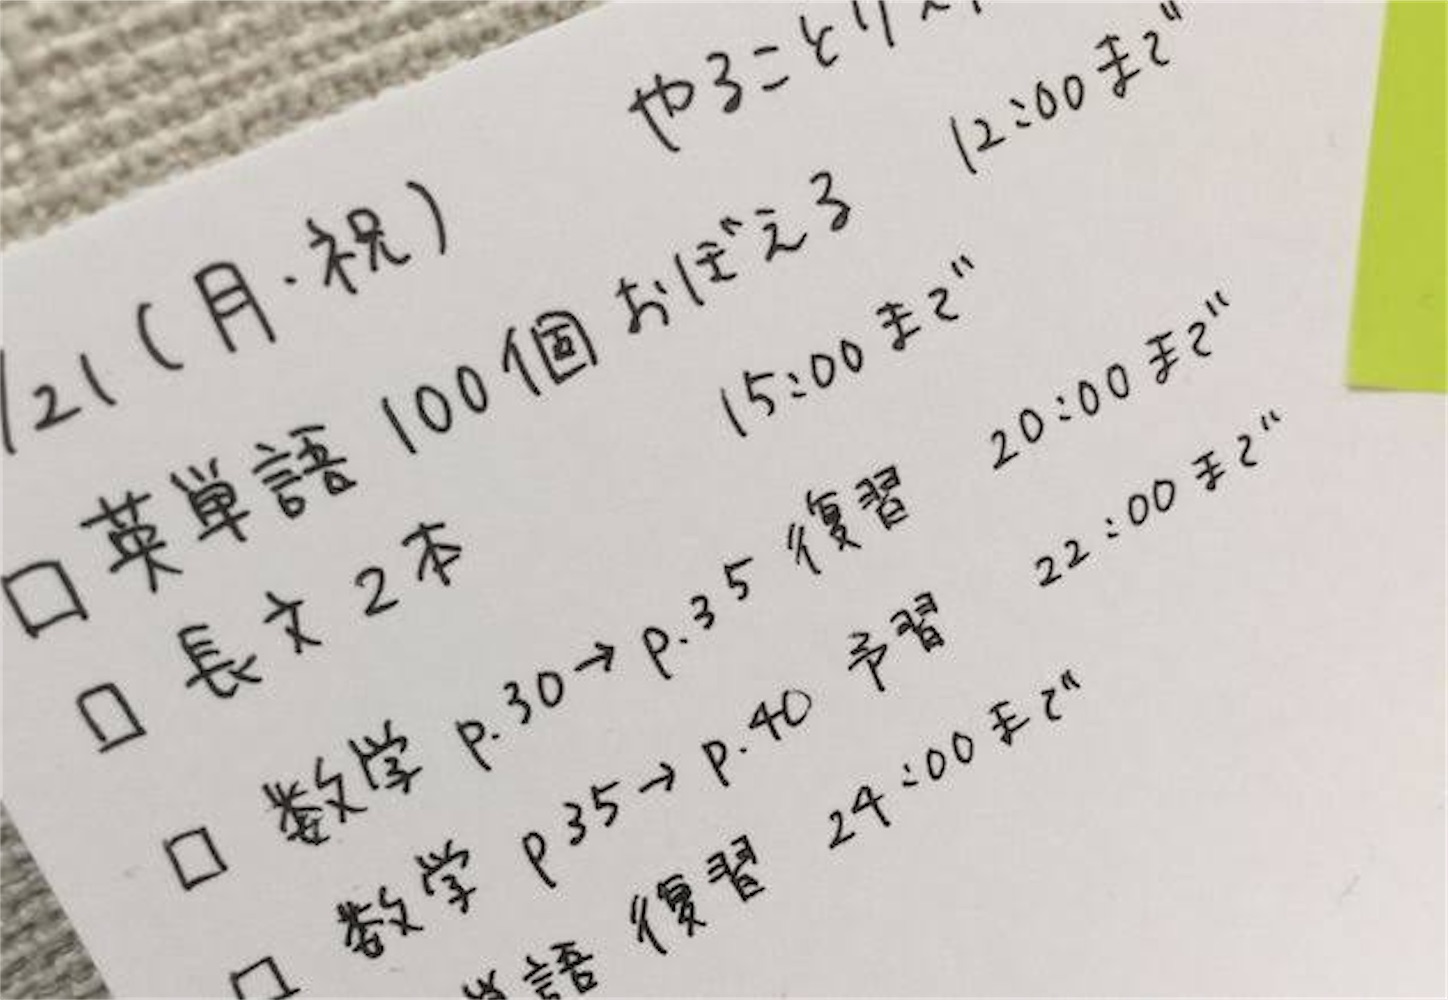 やることリスト
/21(月・祝)
□ 英単語 100個 おぼえる 12:00まで
□ 長文 2本 15:00まで
□ 数学 p.30→p.35 復習 20:00まで
□ 数学 p35→p.40 予習 22:00まで
単語 復習 24:00まで